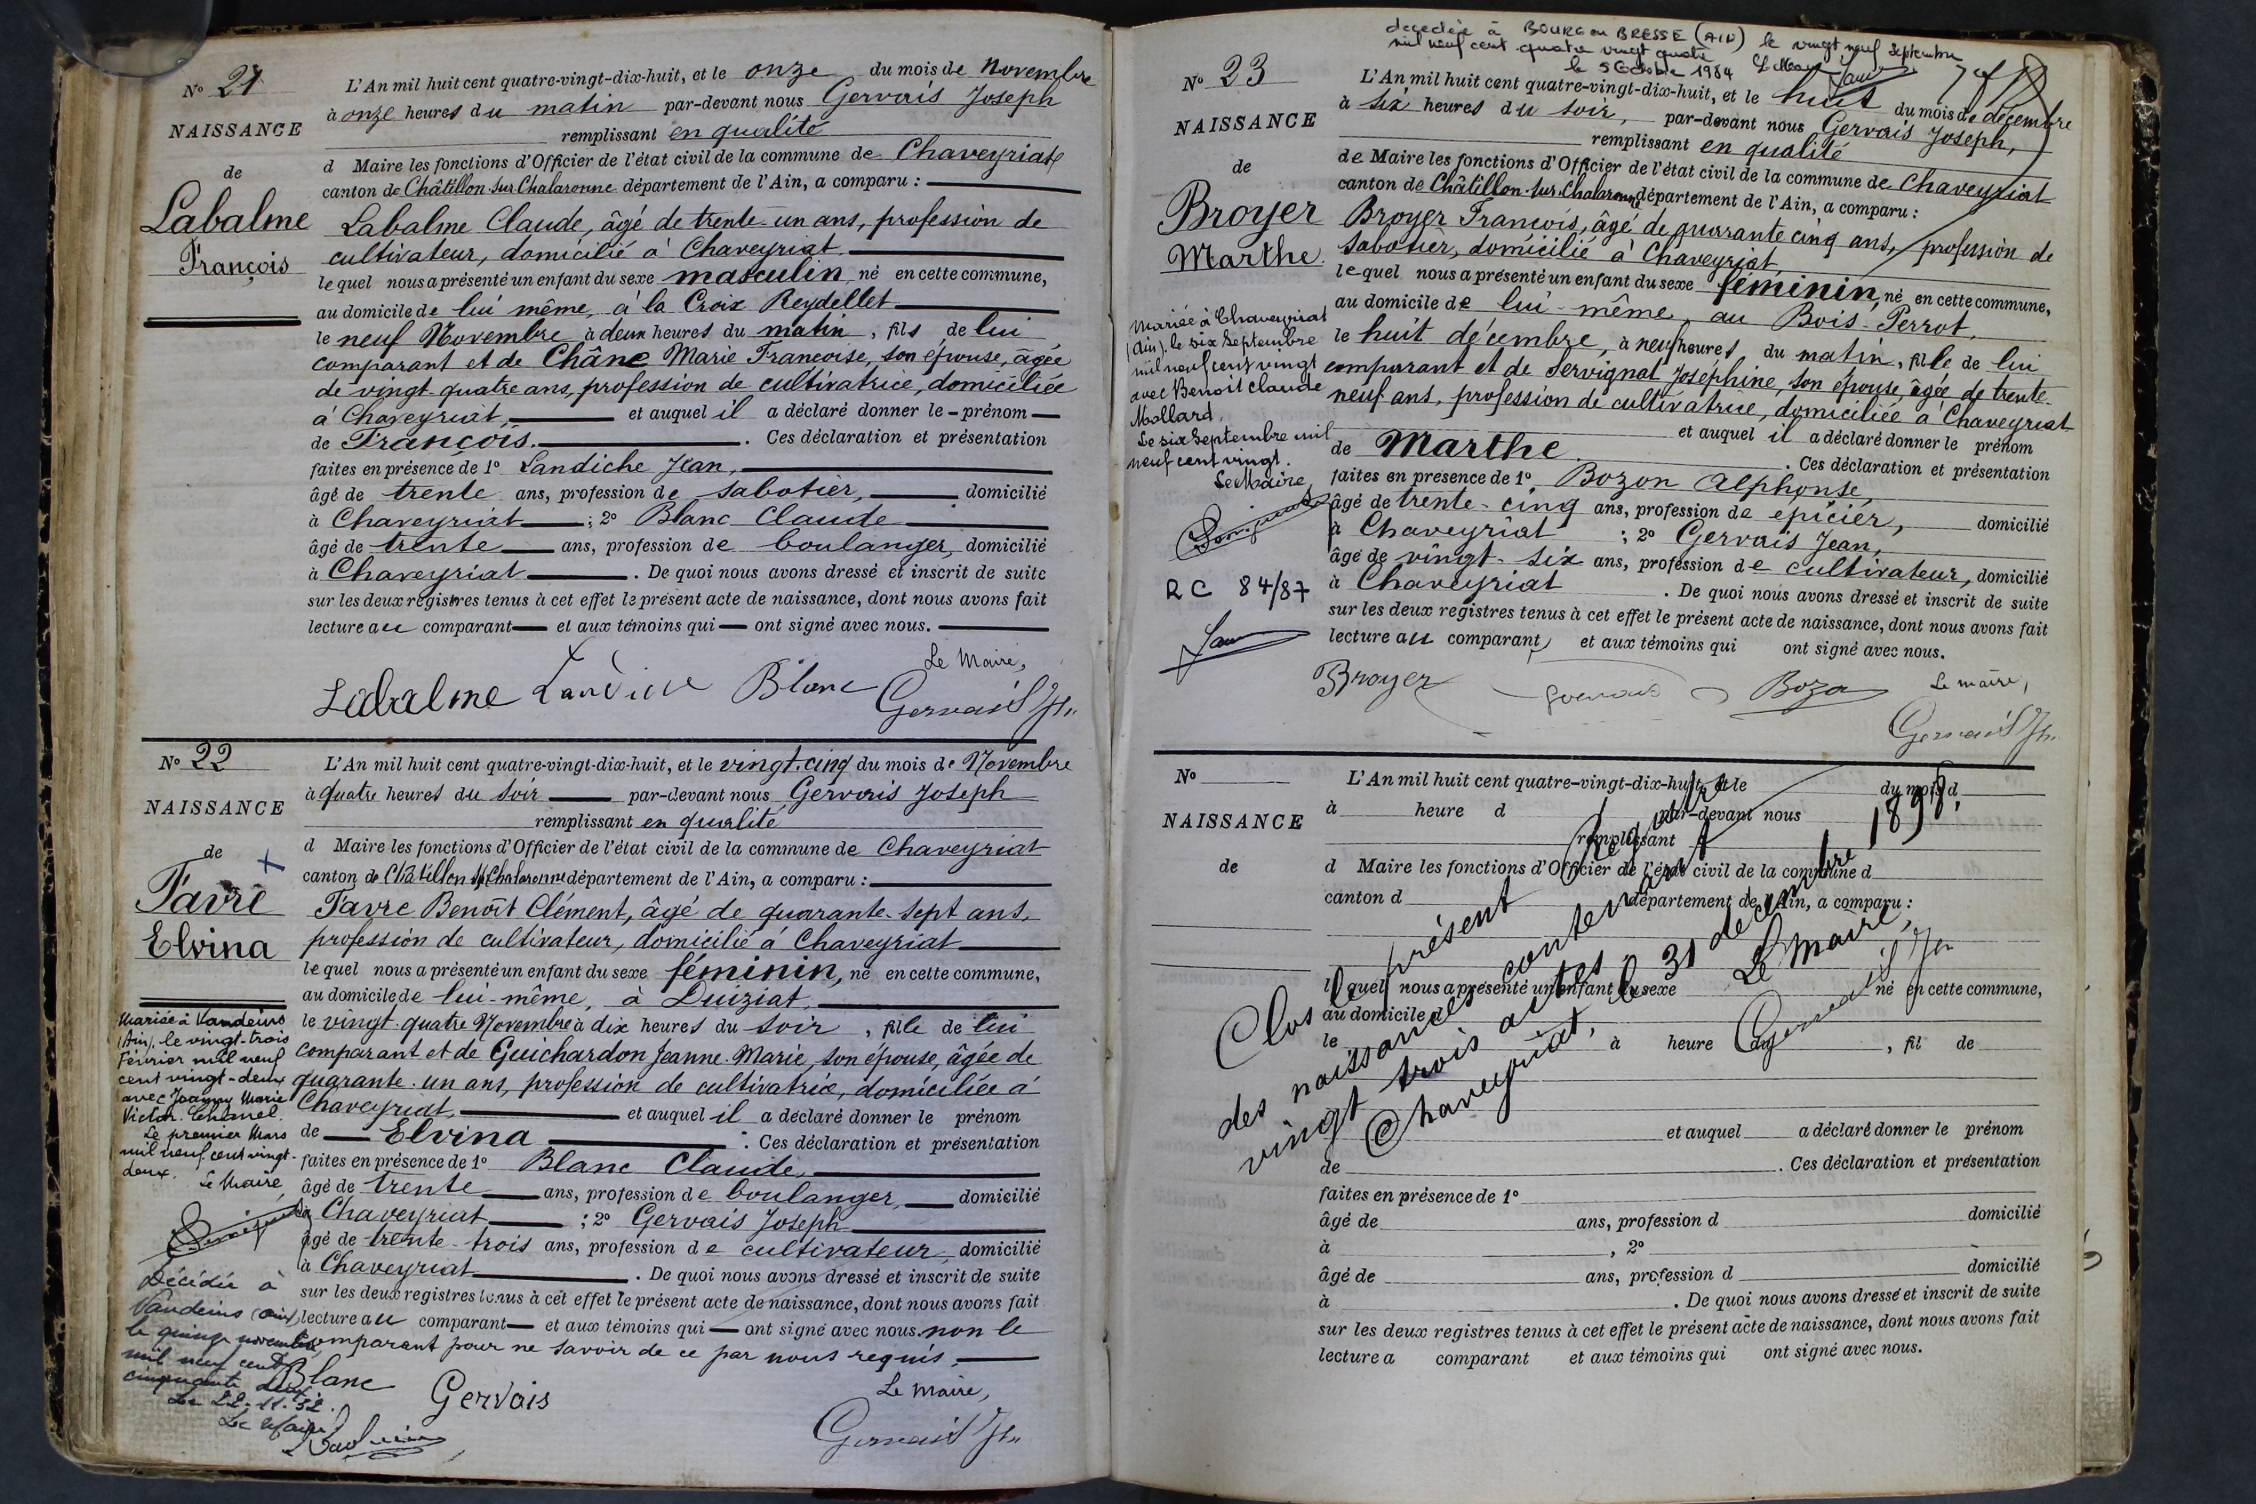 N° 21
NAISSANCE
de
Labalme
François
L'An mil huit cent quatre-vingt-dix-huit, et le onze du mois de Novembre
à onze heures du matin par-devant nous Gervais Joseph
remplissant en qualité
d Maire les fonctions d'Officier de l'état civil de la commune de Chaveyriat
canton de Châtillon-sur-Chalaronne département de l'Ain, a comparu :
Labalme Claude, âgé de trente-un ans, profession de
cultivateur, domicilié à Chaveyriat
lequel nous a présenté un enfant du sexe masculin, né en cette commune,
au domicile de lui même, à la Croix Reydellet
le neuf Novembre à deux heures du matin, fils de lui
comparant et de Chêne Marie Francoise, son épouse, âgée
de vingt-quatre ans, profession de cultivatrice, domiciliée
à Chaveyriat, et auquel il a déclaré donner le - prénom
de François. Ces déclaration et présentation
faites en présence de 1° Landiche Jean,
âgé de trente ans, profession de sabotier, domicilié
à Chaveyriat ; 2° Blanc Claude
âgé de trente ans, profession de boulanger, domicilié
à Chaveyriat. De quoi nous avons dressé et inscrit de suite
sur les deux registres tenus à cet effet le présent acte de naissance, dont nous avons fait
lecture au comparant et aux témoins qui ont signé avec nous.
Le Maire,
Labalme Landiche Blanc Gervais Jh
N° 22
NAISSANCE
de
Favre
Elvina
L'An mil huit cent quatre-vingt-dix-huit, et le vingt-cinq du mois de Novembre
à quatre heures du soir par-devant nous Gervais Joseph
remplissant en qualité
d Maire les fonctions d'Officier de l'état civil de la commune de Chaveyriat
canton de Châtillon s/ Chalaronne département de l'Ain, a comparu :
Favre Benoît Clément, âgé de quarante-sept ans,
profession de cultivateur, domicilié à Chaveyriat
lequel nous a présenté un enfant du sexe féminin, né en cette commune,
au domicile de lui-même, à Duiziat,
le vingt-quatre Novembre à dix heures du soir, fille de lui
comparant et de Guichardon Jeanne-Marie, son épouse, âgée de
quarante-un ans, profession de cultivatrice, domiciliée à
Chaveyriat, et auquel il a déclaré donner le prénom
de Elvina. Ces déclaration et présentation
faites en présence de 1° Blanc Claude,
âgé de trente ans, profession de boulanger, domicilié
à Chaveyriat ; 2° Gervais Joseph
âgé de trente-trois ans, profession de cultivateur, domicilié
à Chaveyriat. De quoi nous avons dressé et inscrit de suite
sur les deux registres tenus à cet effet le présent acte de naissance, dont nous avons fait
lecture au comparant et aux témoins qui ont signé avec nous non le
comparant pour ne savoir de ce par nous requis.
Blanc Gervais
Le Maire,
Gervais Jh
Mariée à Vandeins
(Ain), le vingt-trois
Février mil neuf
cent vingt-deux
avec Joanny Marie
Victor
Le premier Mars
mil neuf cent vingt-
deux. Le Maire,
Décédée à
Vandeins (Ain)
le quinze novembre
mil neuf cent
cinquante deux
Le 22-11-52.
Le Maire
decedée à BOURG en BRESSE (AIN) le vingt neuf septembre
mil neuf cent quatre vingt quatre
le 5 Octobre 1984 Le Maire
N° 23
NAISSANCE
de
Broyer
Marthe
L'An mil huit cent quatre-vingt-dix-huit, et le huit du mois de décembre
à six heures du soir, par-devant nous Gervais Joseph,
remplissant en qualité
de Maire les fonctions d'Officier de l'état civil de la commune de Chaveyriat
canton de Châtillon-sur-Chalaronne département de l'Ain, a comparu :
Broyer Francois, âgé de quarante cinq ans, profession de
sabotier, domicilié à Chaveyriat,
lequel nous a présenté un enfant du sexe féminin, né en cette commune,
au domicile de lui-même, au Bois-Perrot,
le huit décembre, à neuf heures du matin, fille de lui
comparant et de Servignat Josephine, son épouse, âgée de trente-
neuf ans, profession de cultivatrice, domiciliée à Chaveyriat
et auquel il a déclaré donner le prénom
de Marthe. Ces déclaration et présentation
faites en présence de 1° Bozon Alphonse,
âgé de trente-cinq ans, profession de épicier, domicilié
à Chaveyriat ; 2° Gervais Jean,
âgé de vingt-six ans, profession de cultivateur, domicilié
à Chaveyriat. De quoi nous avons dressé et inscrit de suite
sur les deux registres tenus à cet effet le présent acte de naissance, dont nous avons fait
lecture au comparant, et aux témoins qui ont signé avec nous.
Broyer Gervais Bozon
Le maire,
Gervais Jh
Mariée à Chaveyriat
(Ain), le six Septembre
mil neuf cent vingt
avec Benoit Claude
Mollard.
Le six Septembre mil
neuf cent vingt.
Le Maire,
RC 84/87
N°
NAISSANCE
de
L'An mil huit cent quatre-vingt-dix-huit, et le du mois d
à heure d par-devant nous
remplissant
d Maire les fonctions d'Officier de l'état civil de la commune d
canton d département de l'Ain, a comparu :
lequel nous a présenté un enfant du sexe né en cette commune,
au domicile d
le à heure du , fil de
et auquel a déclaré donner le prénom
de . Ces déclaration et présentation
faites en présence de 1°
âgé de ans, profession d domicilié
à , 2°
âgé de ans, profession d domicilié
à . De quoi nous avons dressé et inscrit de suite
sur les deux registres tenus à cet effet le présent acte de naissance, dont nous avons fait
lecture a comparant et aux témoins qui ont signé avec nous.
Clos le présent Registre
des naissances contenant
vingt trois actes, le 31 decembre 1898.
Chaveyriat,
Le Maire,
Gervais Jh